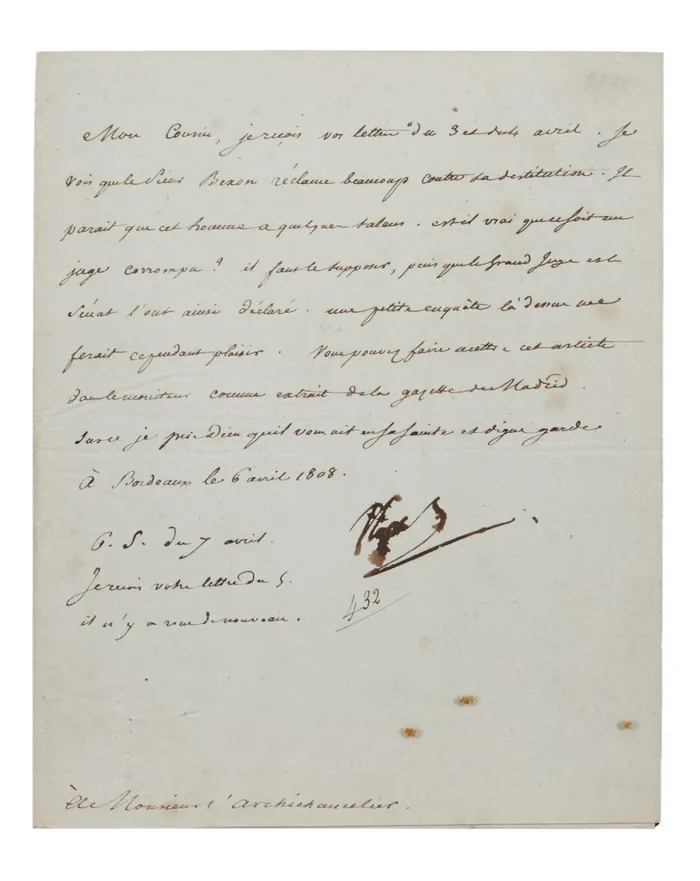 Mon Cousin, je reçois vos lettres du 3 et du 4 avril. Je
vois que le Sieur Bexon réclame beaucoup contre sa destitution. Il
parait que cet homme a quelques talens. est-il vrai que ce soit un
juge corrompu? il faut le supposer, puisque le Grand Juge et le
Sénat l'ont ainsi déclaré. une petite enquête là dessus me
ferait cependant plaisir. Vous pouvez faire mettre cet article
dans le moniteur comme extrait de la gazette de Madrid.
Sur ce je prie Dieu qu'il vous ait en sa sainte et digne garde
À Bordeaux le 6 avril 1808.
P. S. du 7 avril.
Je reçois votre lettre du 5.
il n'y a rien de nouveau.
432
à Monsieur l'Archichancelier.